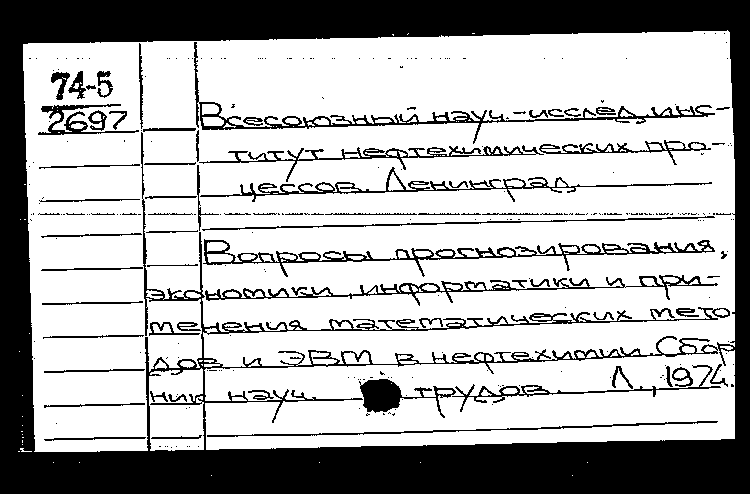 74-5
2697
Всесоюзный науч.-исслед. инс-
титут нефтехимических про-
цессов. Ленинград.
Вопросы прогнозирования,
экономики, информатики и при-
менения математических мето-
дов и ЭВМ в нефтехимии. Сбор
ник науч. трудов. Л., 1974.